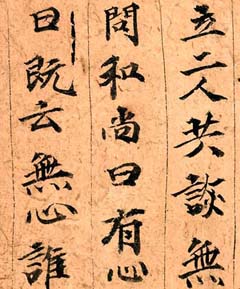 立二人共談無
問和尚曰有心
曰既云無心誰